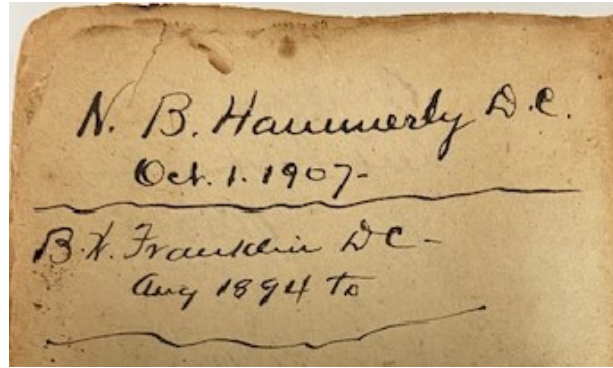 N. B. Hammerly D.C.
Oct. 1. 1907-
B. W. Franklin DC-
Aug 1894 to